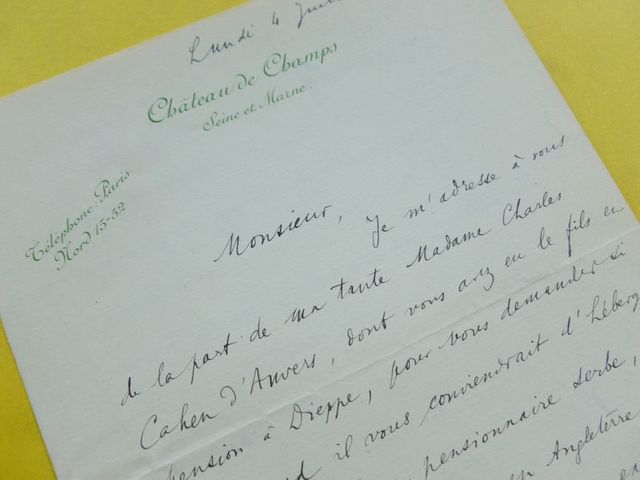 Lundi 4
Château de Champs
Seine et Marne.
Téléphone: Paris
Nord 15-52
Monsieur,
Je m'adresse à vous
de la part de ma tante Madame Charles
Cahen d'Anvers, dont vous avez eu le fils en
pension à Dieppe, pour vous demander si
il vous conviendrait d'héberg
pensionnaire serbe,
en Angleterre